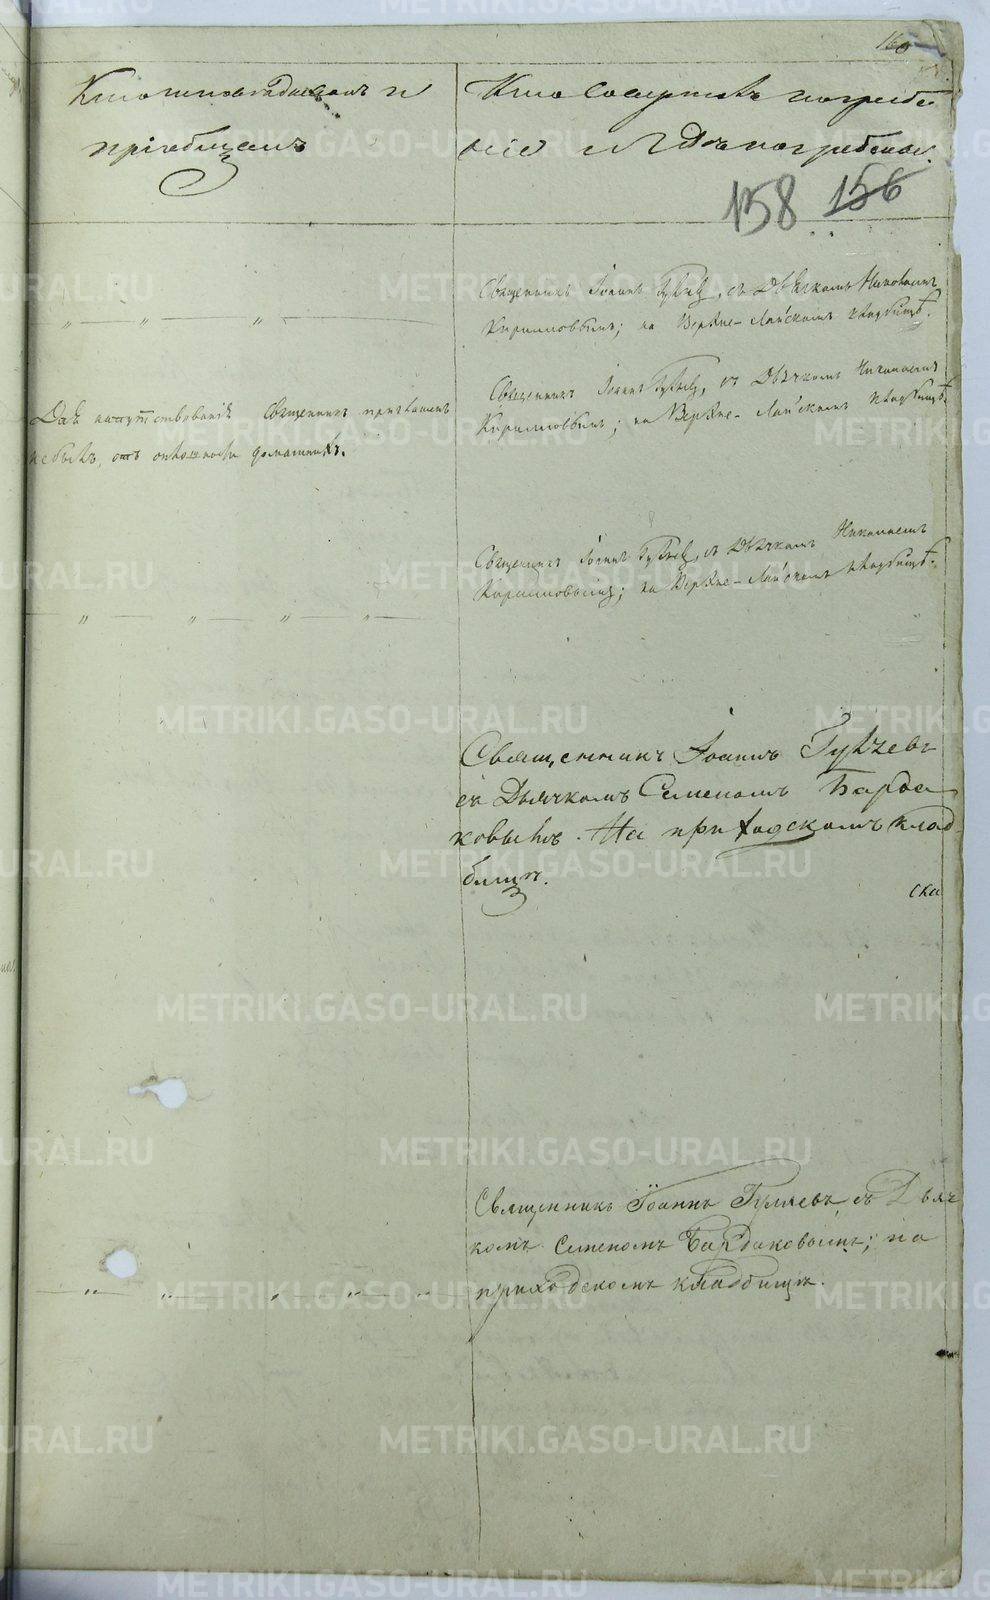 160
Кто исповѣдывалъ и
пріобщалъ
Кто совершалъ погребе-
ніе и гдѣ погребены.
158 156
Священникъ Іоаннъ Гуляевъ, съ Дьячкомъ Николаемъ
Кирилловымъ; на Верхне-Лайскомъ кладбищѣ.
Священникъ Іоаннъ Гуляевъ, съ Дьячкомъ Николаемъ
Кирилловымъ; на Верхне-Лайскомъ кладбищѣ.
Для напутствованія Священникъ призванъ
не былъ, отъ домашнихъ.
Священникъ Іоаннъ Гуляевъ, съ Дьячкомъ Николаемъ
Кирилловымъ; на Верхне-Лайскомъ кладбищѣ.
Священникъ Іоаннъ Гуляевъ
съ Дьячкомъ Семеномъ Барда
ковымъ. На приходскомъ клад-
бищѣ.
ска
Священникъ Іоаннъ Гуляевъ, съ Дьяч
комъ Семеномъ Бардаковымъ; на
приходскомъ кладбищѣ.
METRIKI.GASO-URAL.RU